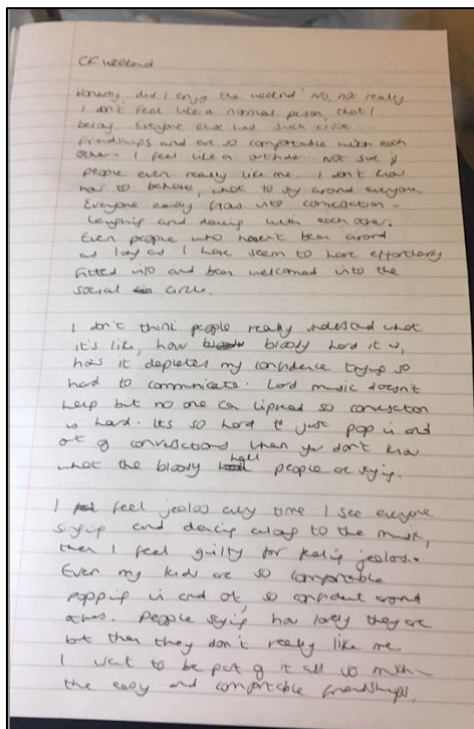 CF weekend
Honestly, did I enjoy the weekend? No, not really
I don't feel like a normal person, that I
belong. Everyone else has such close
friendships and are so comfortable with each
other - I feel like a outsider. Not sure if
people even really like me. I don't know
how to behave, what to say around everyone.
Everyone easy flows into conversation -
laughing and dancing with each other.
Even people who haven't been around
as long as I have seem to have effortlessly
fitted into and been welcomed into the
social circle.
I don't think people really understand what
it's like, how bloody hard it is,
how it depletes my confidence trying so
hard to communicate. Loud music doesn't
help but no one can lipread so conversation
is hard. Its so hard to just pop in and
out of conversations when you don't know
what the bloody hell people are saying.
I feel jealous every time I see everyone
singing and dancing along to the music,
then I feel guilty for feeling jealous.
Even my kids are so comfortable
popping in and out, so confident around
others. People saying how lovely they are
but then they don't really like me
I want to be part of it all so much -
the easy and comfortable friendships,